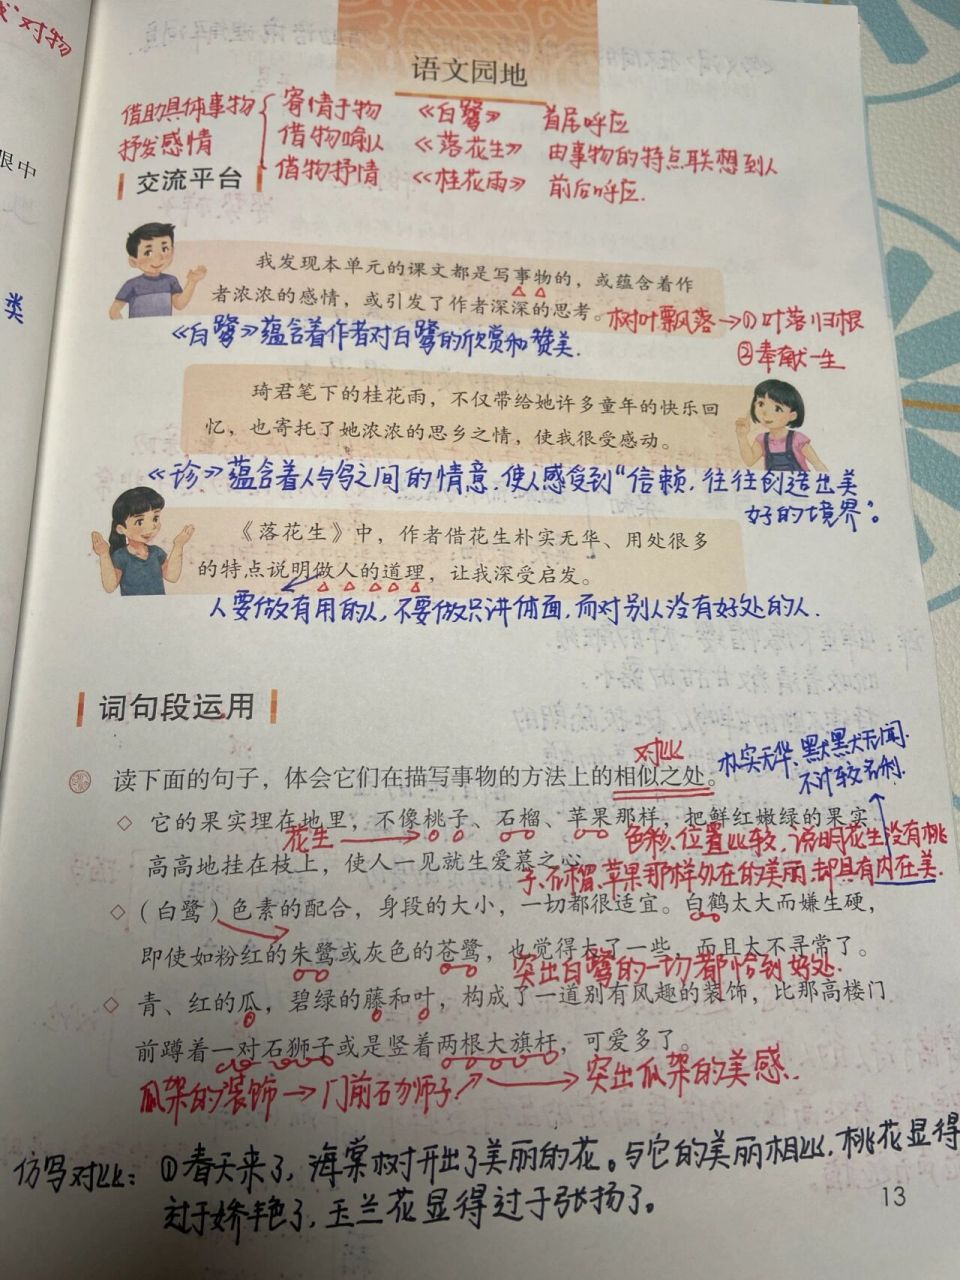 对物
眼中
类
语文园地
借助具体事物 寄情于物 《白鹭》 首尾呼应
抒发感情 借物喻人 《落花生》 由事物的特点联想到人
借物抒情 《桂花雨》 前后呼应
交流平台
我发现本单元的课文都是写事物的，或蕴含着作
者浓浓的感情，或引发了作者深深的思考。
树叶飘落→①叶落归根
②奉献一生
《白鹭》蕴含着作者对白鹭的欣赏和赞美.
琦君笔下的桂花雨，不仅带给她许多童年的快乐回
忆，也寄托了她浓浓的思乡之情，使我很受感动。
《珍》蕴含着人与鸟之间的情意.使人感受到“信赖，往往创造出美
好的境界”。
《落花生》中，作者借花生朴实无华、用处很多
的特点说明做人的道理，让我深受启发。
人要做有用的人，不要做只讲体面，而对别人没有好处的人.
词句段运用
对比
朴实无华、默默无闻.
不计较名利.
读下面的句子，体会它们在描写事物的方法上的相似之处。
◇ 它的果实埋在地里，不像桃子、石榴、苹果那样，把鲜红嫩绿的果实
花生 色彩、位置比较，说明花生没有桃
高高地挂在枝上，使人一见就生爱慕之心。
子、石榴、苹果那样外在的美丽，却具有内在美.
◇ （白鹭）色素的配合，身段的大小，一切都很适宜。白鹤太大而嫌生硬，
即使如粉红的朱鹭或灰色的苍鹭，也觉得大了一些，而且太不寻常了。
突出白鹭的一切都恰到好处.
◇ 青、红的瓜，碧绿的藤和叶，构成了一道别有风趣的装饰，比那高楼门
前蹲着一对石狮子或是竖着两根大旗杆，可爱多了。
瓜架的装饰→门前石狮子→突出瓜架的美感.
仿写对比：①春天来了，海棠树开出了美丽的花。与它的美丽相比，桃花显得
过于娇艳了，玉兰花显得过于张扬了。
13